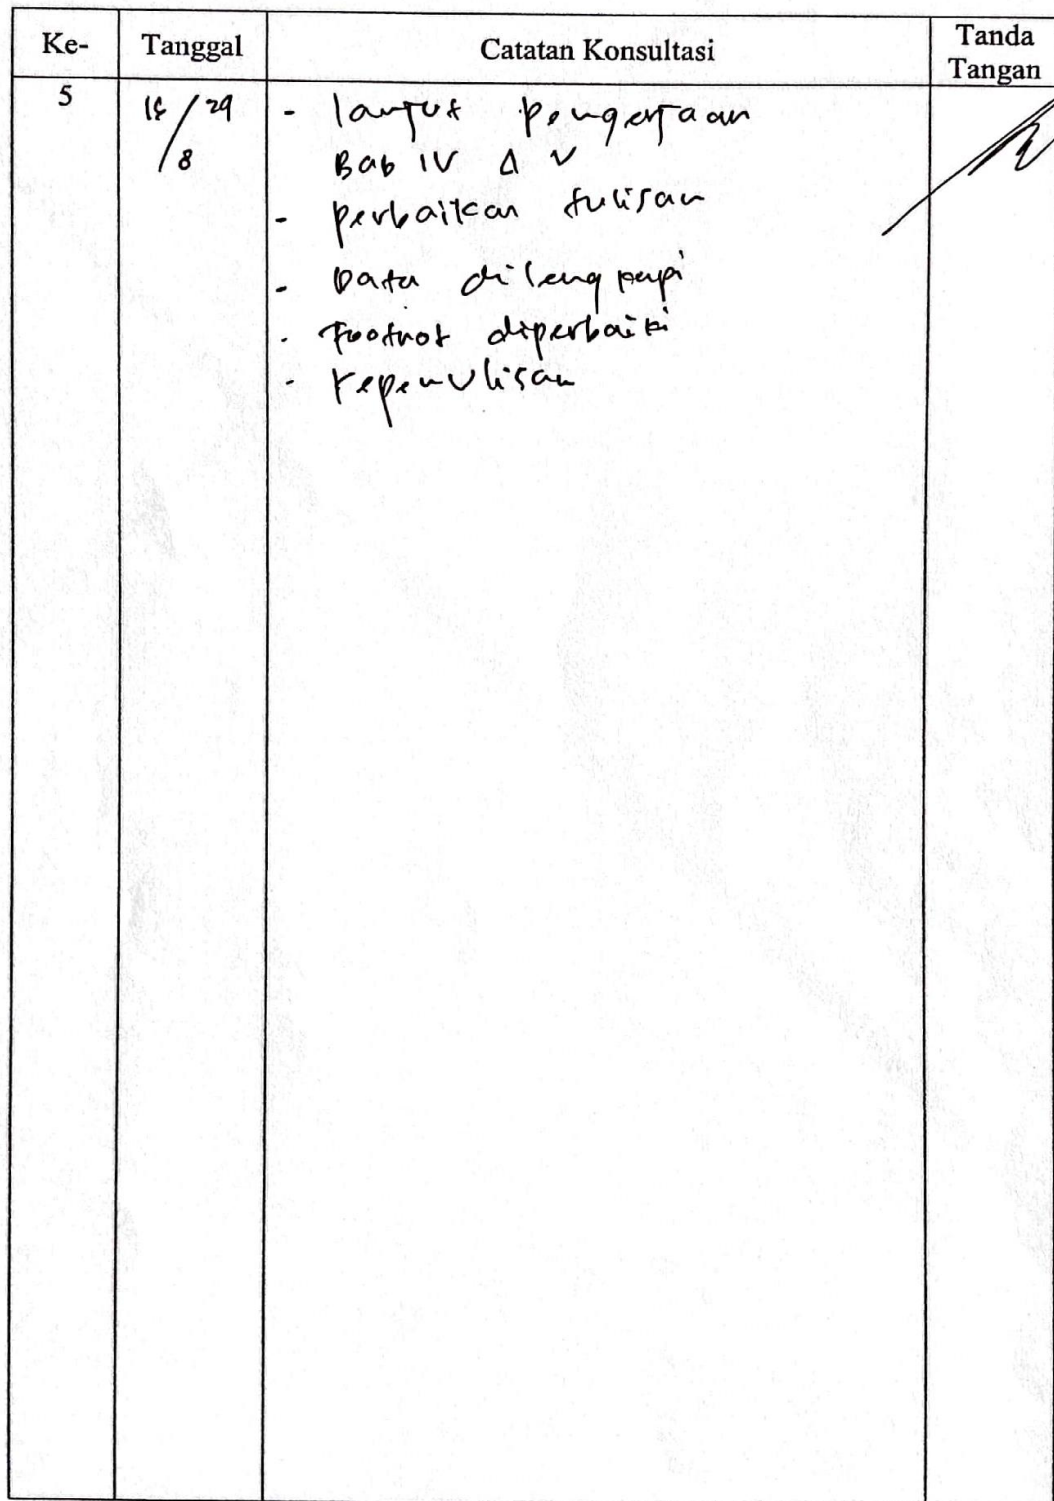 Ke- Tanggal Catatan Konsultasi Tanda Tangan
5 15/8 29 - lanjut pengerjaan
Bab IV & V
- perbaikan tulisan
- Data dilengkapi
- Footnot diperbaiki
- kepenulisan